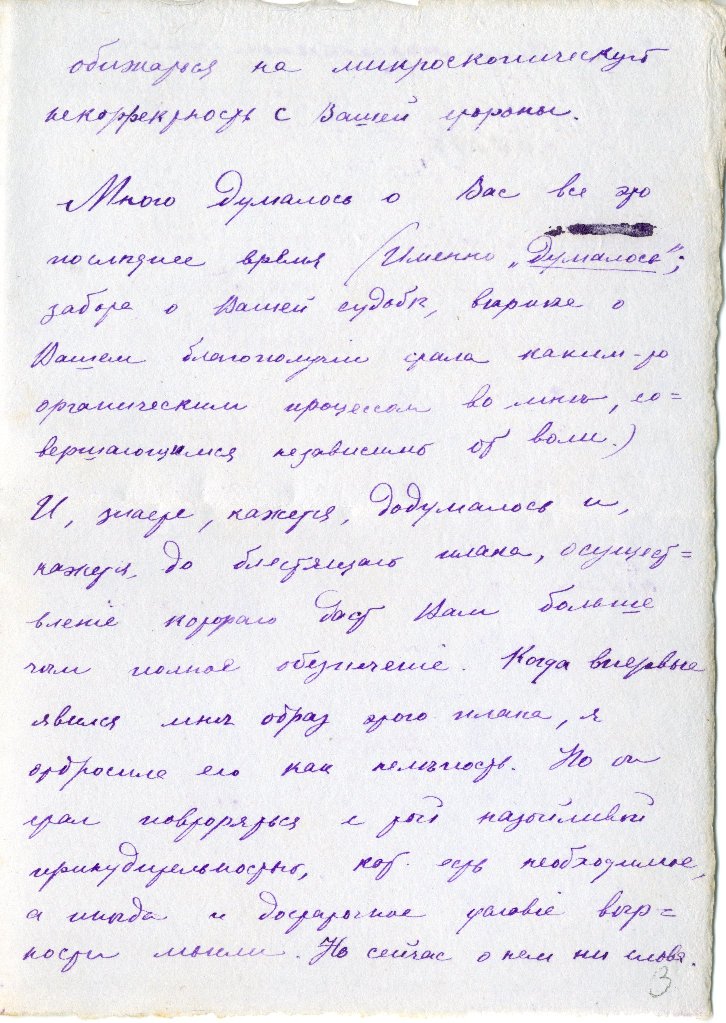 обижаться на микроскопическую
некорректность с Вашей стороны.
Много думалось о Вас все это
последнее время (Именно „думалось“;
забота о Вашей судьбѣ, вѣрнѣе о
Вашем благополучіи стала каким-то
органическим процессом во мнѣ, со=
вершающимся независимо от воли.)
И, знаете, кажется, додумалось и,
кажется, до блестящаго плана, осуществ=
вленіе котораго даст Вам больше
чѣм полное обезпеченіе. Когда впервые
явился мнѣ образ этого плана, я
отбросила его как нелѣпость. Но он
стал повторяться с той назойливой
принудительностью, кот. есть необходимое,
а иногда и достаточное условіе вѣр=
ности мысли. Но сейчас о нем ни слова.
3